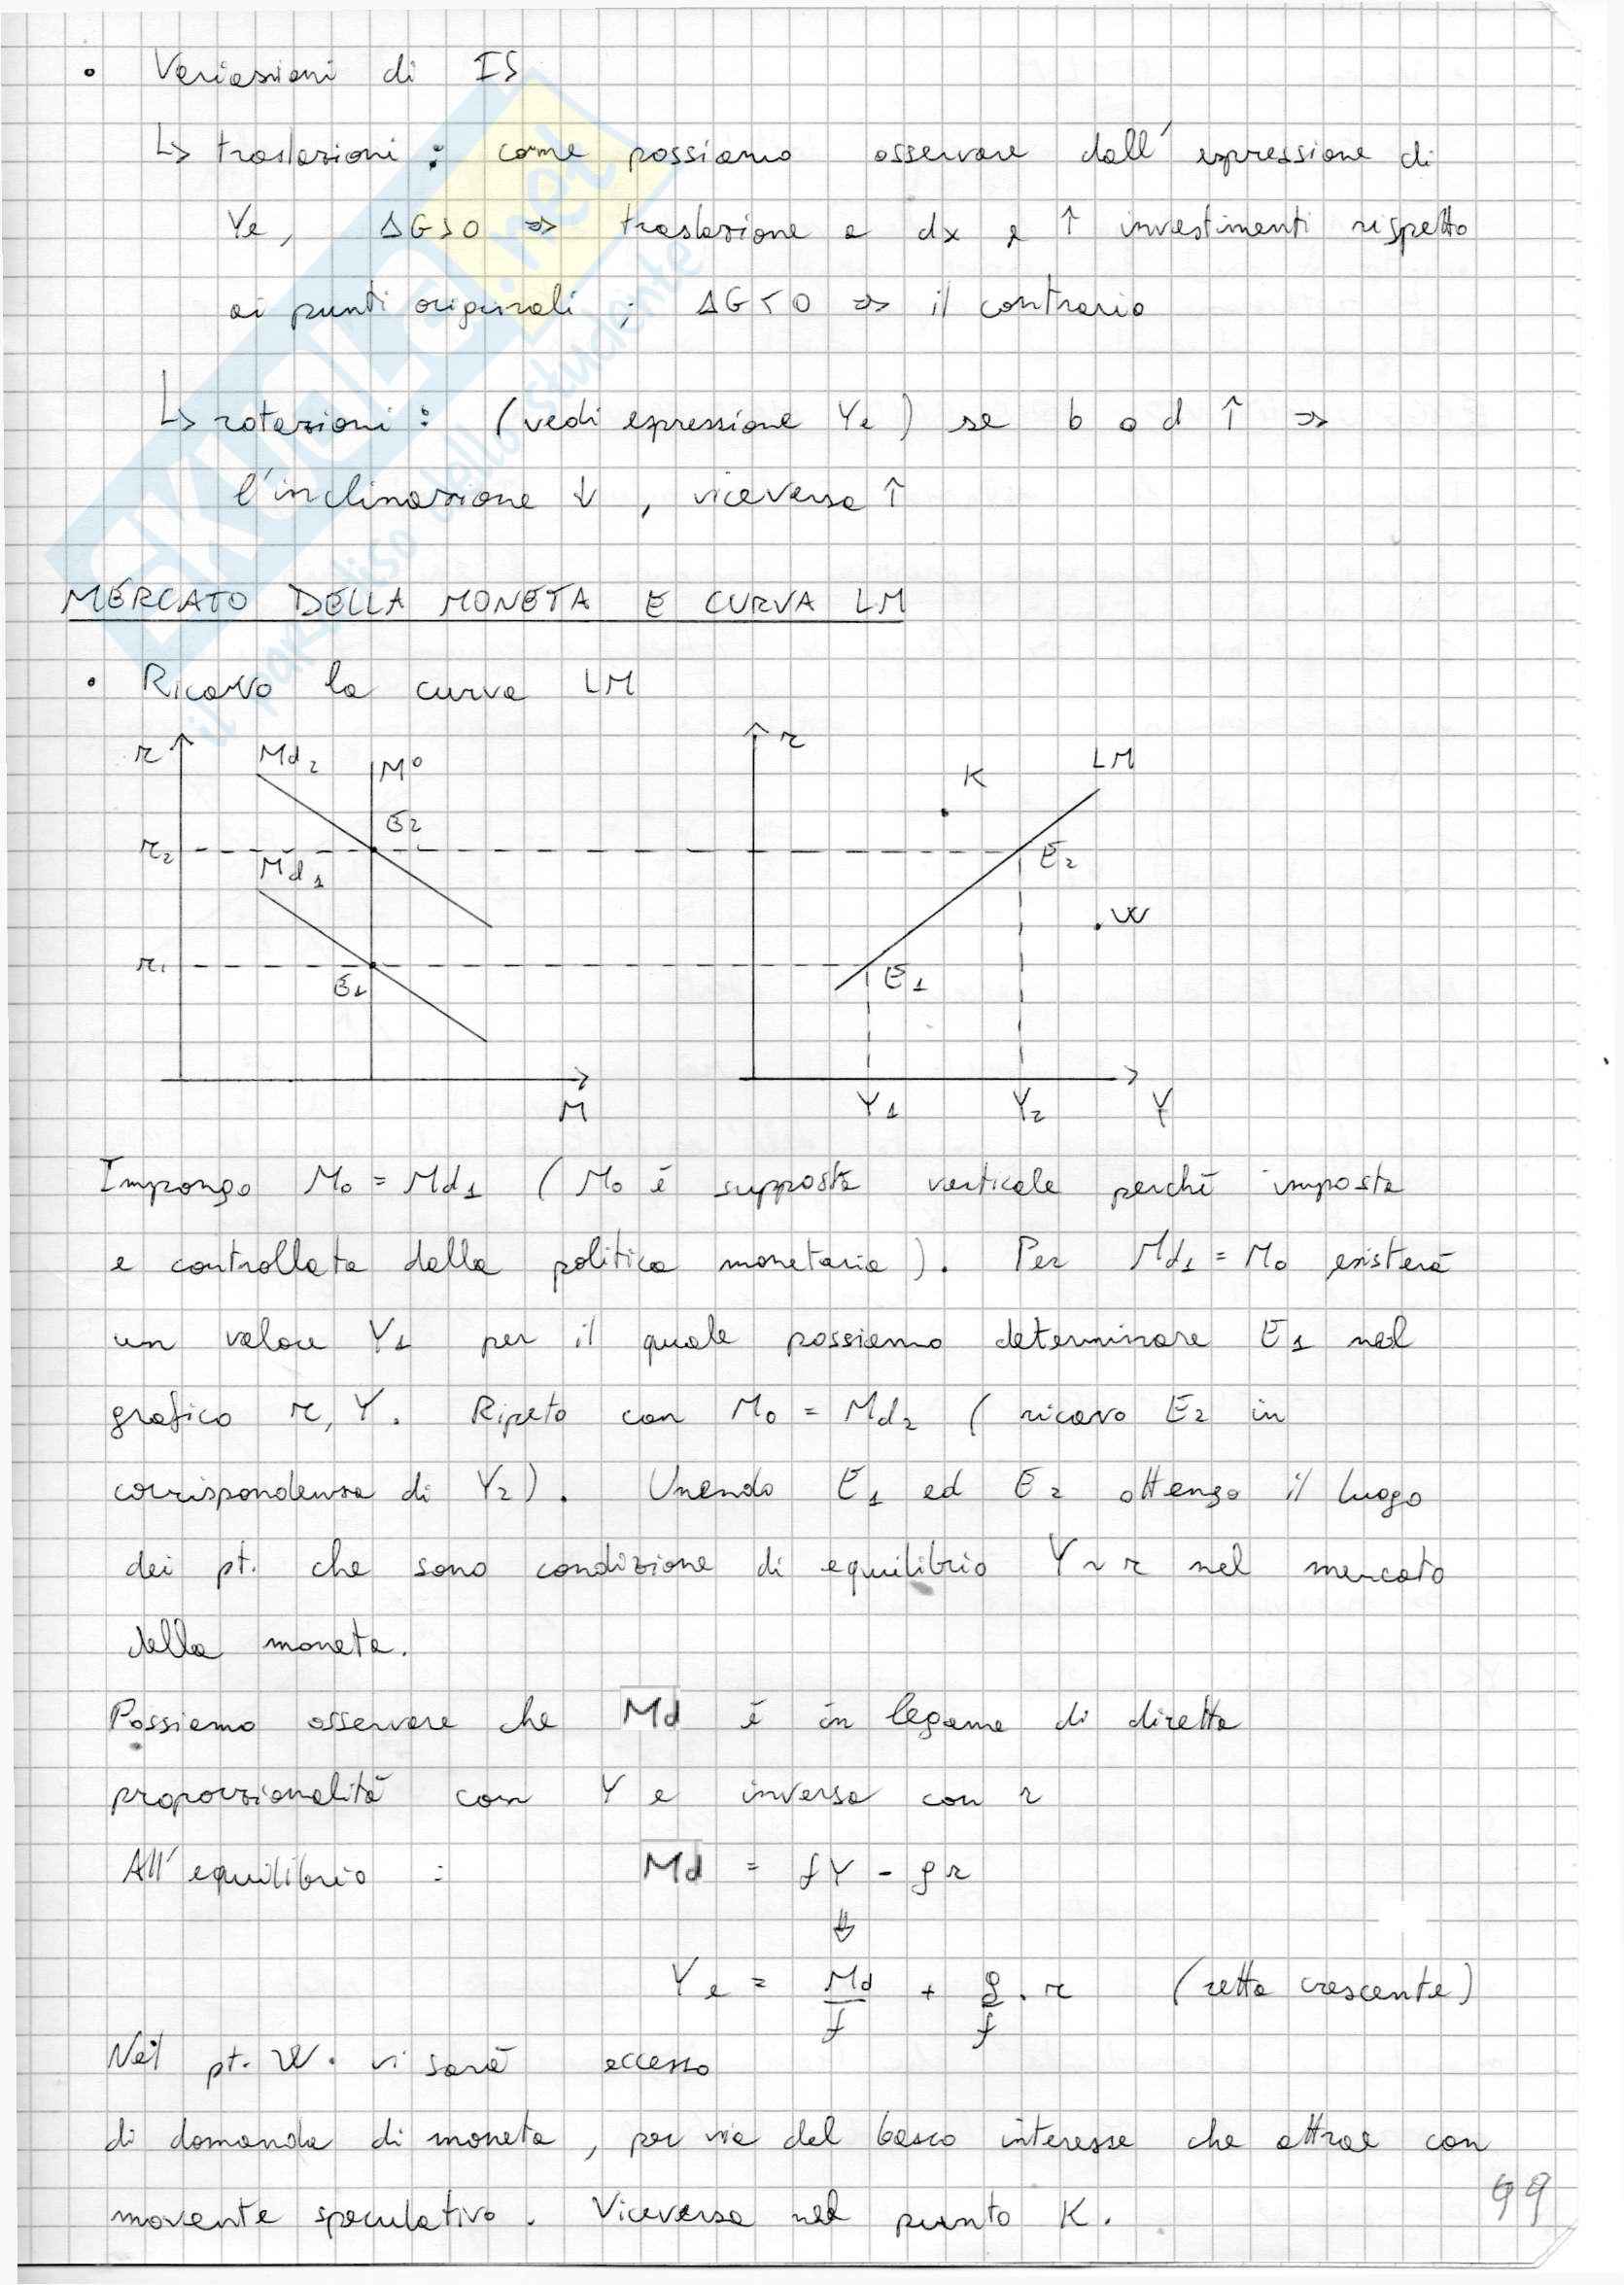 • Variazioni di IS
↳ traslazioni : come possiamo osservare dall' espressione di
Ye, ΔG>0 => traslazione a dx e ↑ investimenti rispetto
ai punti originali ; ΔG<0 => il contrario
↳ rotazioni : (vedi espressione Ye) se b o d ↑ =>
l'inclinazione ↓ , viceversa ↑
MERCATO DELLA MONETA E CURVA LM
• Ricavo la curva LM
r Md2 M° E2 r2 Md1 r1 E1 M
r K LM E2 W E1 Y1 Y2 Y
Impongo M0 = Md1 ( M0 è supposta verticale perchè imposta
e controllata dalla politica monetaria ). Per Md1 = M0 esisterà
un valore Y1 per il quale possiamo determinare E1 nel
grafico r, Y. Ripeto con M0 = Md2 ( ricavo E2 in
corrispondenza di Y2). Unendo E1 ed E2 ottengo il luogo
dei pt. che sono condizione di equilibrio Y ~ r nel mercato
della moneta.
Possiamo osservare che Md è in legame di diretta
proporzionalità con Y e inversa con r
All' equilibrio : Md = fY - gr
⇓
Ye = Md/f + g/f . r (retta crescente)
Nel pt. W. vi sarà eccesso
di domanda di moneta, per via del basso interesse che attrae con
movente speculativo. Viceversa nel punto K.
99
SKUOLA.net
il paradiso dello studente